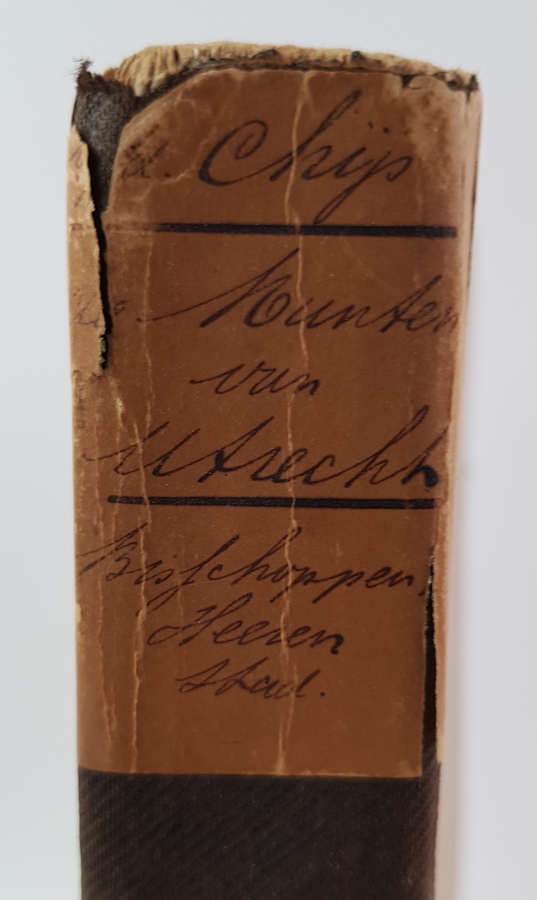 Chijs
Munten
van
Utrecht
Bisschoppen,
Heeren
Stad.